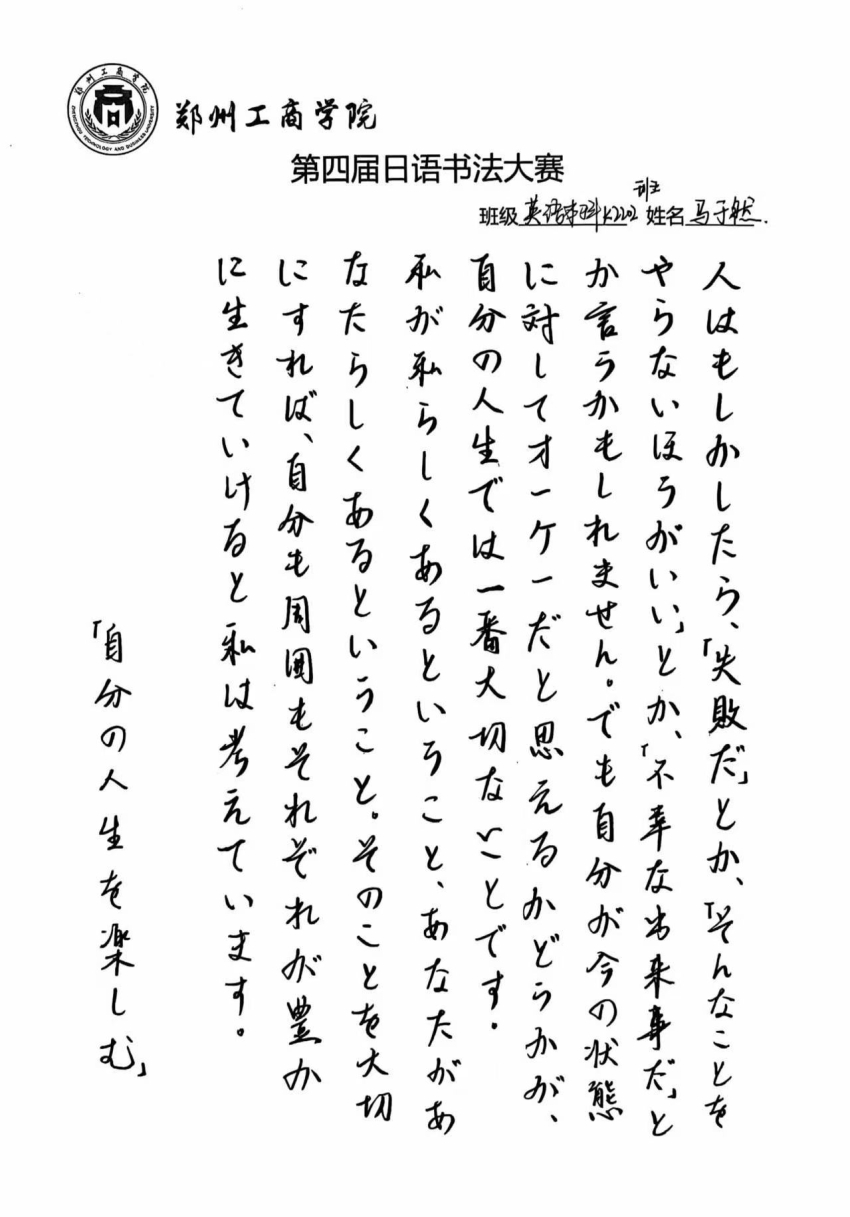 郑州工商学院
ZHENGZHOU TECHNOLOGY AND BUSINESS UNIVERSITY
郑州工商学院
第四届日语书法大赛
班级 英语本科K2202班 姓名 马于然.
人はもしかしたら、「失敗だ」とか、「そんなことを
やらないほうがいい」とか、「不幸な出来事だ」と
か言うかもしれません。でも自分が今の状態
に対してオーケーだと思えるかどうかが、
自分の人生では一番大切なことです.
私が私らしくあるということ、あなたがあ
なたらしくあるということ。そのことを大切
にすれば、自分も周囲もそれぞれが豊か
に生きていけると私は考えています。
「自分の人生を楽しむ」